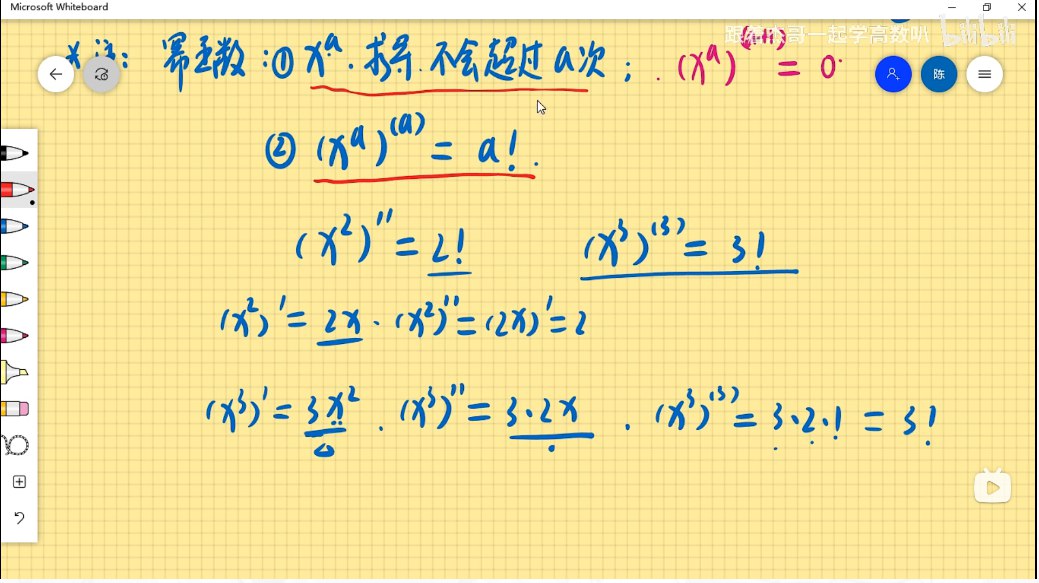 Microsoft Whiteboard
跟着木哥一起学高数叭 bilibili
*注: 幂函数:① x^a. 求导. 不会超过a次; . (x^a)^(a+1) = 0.
陈
② (x^a)^(a) = a!.
(x^2)'' = 2! (x^3)^(3) = 3!
(x^2)' = 2x . (x^2)'' = (2x)' = 2
(x^3)' = 3x^2 . (x^3)'' = 3·2x . (x^3)^(3) = 3·2·1 = 3!